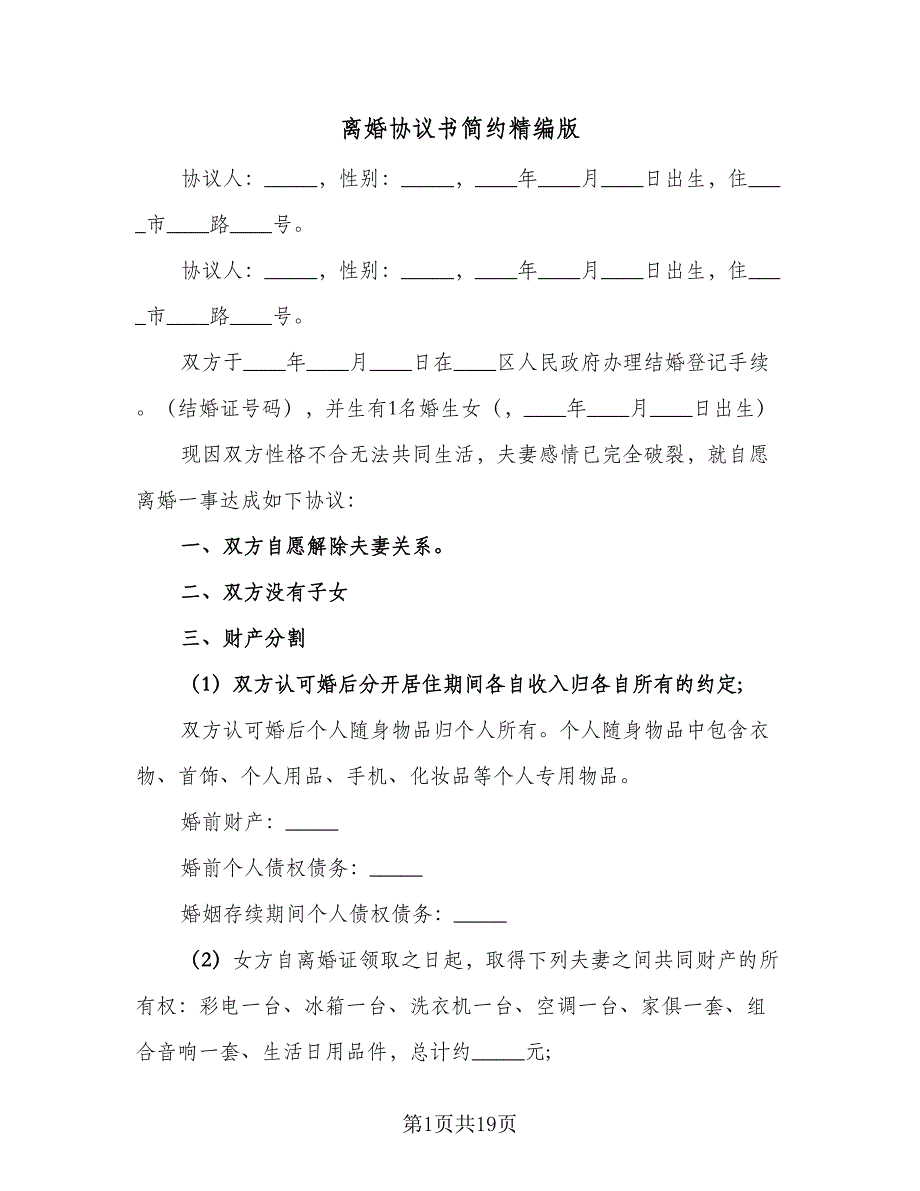 离婚协议书简约精编版
协议人：_____，性别：_____，____年____月____日出生，住___
_市____路____号。
协议人：_____，性别：_____，____年____月____日出生，住___
_市____路____号。
双方于____年____月____日在____区人民政府办理结婚登记手续
。（结婚证号码），并生有1名婚生女（，____年____月____日出生）
现因双方性格不合无法共同生活，夫妻感情已完全破裂，就自愿
离婚一事达成如下协议：
一、双方自愿解除夫妻关系。
二、双方没有子女
三、财产分割
（1）双方认可婚后分开居住期间各自收入归各自所有的约定;
双方认可婚后个人随身物品归个人所有。个人随身物品中包含衣
物、首饰、个人用品、手机、化妆品等个人专用物品。
婚前财产：_____
婚前个人债权债务：_____
婚姻存续期间个人债权债务：_____
（2）女方自离婚证领取之日起，取得下列夫妻之间共同财产的所
有权：彩电一台、冰箱一台、洗衣机一台、空调一台、家俱一套、组
合音响一套、生活日用品件，总计约_____元;
第1页共19页